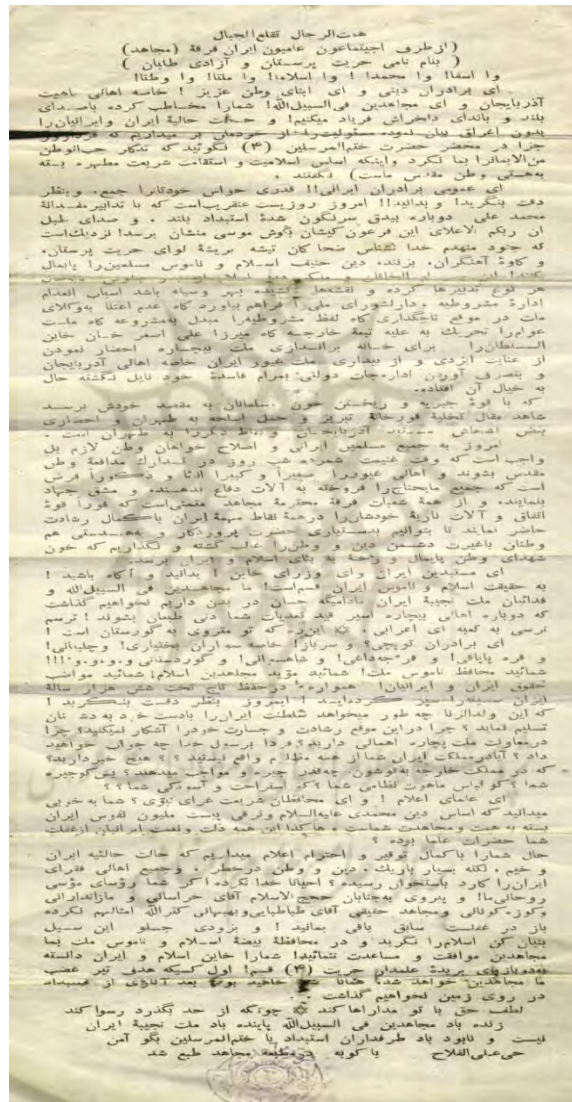 همت‌الرجال تقلع‌الجبال
( از طرف اجتماعیون عامیون ایران فرقهٔ (مجاهد)
( بنام نامی حریت پرستان و آزادی طلبان )
وا اسفا! وا محمدا! وا اسلاما! وا ملتا! وا وطنا!
ای برادران دینی و ای ابنای وطن عزیز ! خاصه اهالی
آذربایجان و ای مجاهدین فی‌السبیل‌الله! شمارا مخاطب کرده باصدای
بلند و بانگ دلخراش فریاد میکنیم! و حالت حالیهٔ ایران و ایرانیان‌را
بدون اغراق بیان نموده مسئولیت‌را از خودمان بر میداریم که فردا روز
جزا در محضر حضرت ختم‌المرسلین (ص) نگوئید که تذکار حب‌الوطن
من‌الایمان‌را بما نکرد و اینکه اساس اسلامیت و استقامت شریعت مطهره بسته
به‌هستی وطن مقدس ماست) نگفتند .
ای عمومی برادران ایرانی!! قدری حواس خودتانرا جمع، وبنظر
دقت بنگرید! و بدانید!! امروز روزیست عنقریب‌است که با تدابیر مفسدانهٔ
محمد علی دوباره بیدق سرنگون شدهٔ استبداد بلند . و صدای طبل
ان ربکم الاعلای این فرعون کیشان بگوش موسی منشان برسد! نزدیک‌است
که جنود متهدم خدا نشناس ضحاکان تیشه بریشهٔ لوای حریت پرستان،
و کاوهٔ آهنگران، بزنند. دین حنیف اسلام و ناموس مسلمین‌را پایمال
هر نوع تدبیرها کرده و نقشه‌ها کشیده بهر وسیله باشد اسباب انعدام
ادارهٔ مشروطیه و دارالشورای ملی‌را فراهم بیاورد گاه عدم اعتنا به‌وکلای
ملت در موقع تاجگذاری گاه لفظ مشروطیه‌را مبدل به‌مشروعه گاه ملت
عوام‌را تحریک به علیه تبعهٔ خارجه گاه میرزا علی اصغر خان خاین
السلطان‌را برای خانه براندازی ملت بیچاره احضار نمودن
از عنایت ایزدی و از بیداری ملت غیور ایران خاصه اهالی آذربایجان
و بتصرف آوردن ادارجات دولتی بمرام فاسدهٔ خود نایل نگشته حال
به خیال آن افتاده.
که با قوهٔ جبریه و ریختن خون مسلمانان به مقصد خودش برسد
شاهد مقال تخلیهٔ قورخانهٔ تبریز و حمل اسلحه به طهران و احضاری
بعض اشخاص آذربایجان و نقاط دیگررا به طهران است .
امروز به جمیع مسلمین ایرانی و اصلاح خواهان وطن لازم بل
واجب است که وقت غنیمت شمرده شب روز در تدارک مدافعهٔ وطن
مقدس بشوند و اهالی غیوررا صغیراً و کبیراً اناثاً و ذکوراً فرض
است که جمیع مایحتاج‌را فروخته به آلات دفاع بدهند و مشق جهاد
بنمایند، و از همهٔ شعبات فرقهٔ محترمهٔ مجاهد متمنی‌است که فوراً قوهٔ
اتفاق و آلات ناریهٔ خودشان‌را درهمهٔ نقاط مهمهٔ ایران باکمال رشادت
حاضر نمایند تا بتوانیم بدستیاری حضرت پروردگار و همدستی هم
وطنان باغیرت دشمن دین و وطن‌را غالب گشته و نگذاریم که خون
شهدای وطن پایمال و رخنه به بنای اسلام و ایران برسد.
ای مستبدین ایران وای وزرای خاین ! بدانید و آگاه باشید !
به حقیقت اسلام و ناموس ایران قسم‌است! ما مجاهدین فی السبیل‌الله و
فدائیان ملت نجیبهٔ ایران مادامیکه جان در بدن داریم نخواهیم گذاشت
که دوباره اهالی بیچاره اسیر قید تعدیات شما دنی طبعان بشوند ! ترسم
نرسی به کعبه ای اعرابی ، این ره که تو میروی به گورستان است !
ای برادران توپچی! و سرباز! خاصه سواران بختیاری! وچلبیانی!
و قره پاپاقی! و قره‌جه‌داغی! و شاهسوانی! و کوردستانی و.و.و.و.!!!!
شمائید محافظ ناموس ملت! شمائید مؤید مجاهدین اسلام! شمائید مواضب
حقوق ایران و ایرانیان! همواره درحفظ تاج تخت شش هزار سالهٔ
ایران سینه‌را سپر کرده‌اید ! امروز بنظر دقت بنگرید !
که این ولدالزنا چه طور میخواهد سلطنت ایران‌را بادست خود به دشمنان
تسلیم نماید ؟ چرا دراین موقع رشادت و جسارت خودرا آشکار نمیکنید؟ چرا
درمعاونت ملت بیچاره اهمالی دارید؟ فردا برسول خدا چه جواب خواهید
داد ؟ آیا در مملکت ایران شما از همه مظالم واقع نیستید ؟ ؟ هیچ خبر دارید؟
که در مملکت خارجه به‌قوشون چه‌قدر جیره و مواجب میدهند؟ پس‌کو جیره
شما ؟کو لباس ماهوت نظامی شما ؟کو استراحت و آسودگی شما ؟ ؟
ای علمای اعلام ! و ای محافظان شریعت غرای نبوی ؟ شما به خوبی
میدانید که اساس دین محمدی علیه‌السلام وترقی بیست ملیون نفوس ایران
بسته به همت و مجاهدت شماست و هاکذا این همه ذلت و نقمت ایرانیان ازغفلت
شما حضرات علما بوده ؟
حال شمارا باکمال توقیر و احترام اعلام میداریم که حالت حالئیه ایران
و خیم ، نکته بسیار باریک، دین و وطن درخطر ، وجمیع اهالی فقرای
ایران‌را کارد باستخوان رسیده ؟ احیانا خدا نکرده اگر شما رؤسای مؤسی
روحانی‌ما! و پیروی به‌جنابان حجج‌الاسلام آقای خراسانی و مازاندارانی
وکوزه‌کونانی ومجاهد حقیقی آقای طباطبایی‌وبهبهانی کثرالله امثالهم نکرده
باز در غفلت سابق باقی بمانید ! و بزودی جلو این سیل
بنیان‌کن اسلام‌را نگرید و در محافظهٔ بیضهٔ اسلام و ناموس ملت بما
مجاهدین موافقت و مساعدت ننمائید! شمارا خاین اسلام و ایران دانسته
به‌دوبازوی بریدهٔ علمدار حریت (۴) قسم! اول کسیکه هدف تیر غضب
ما مجاهدین خواهد شد همانا شما خاهید بود! بعد آثاری از استبداد
در روی زمین نخواهیم گذاشت . .
لطف حق با تو مداراها کند چونکه از حد بگذرد رسوا کند
زنده باد مجاهدین فی السبیل‌الله پاینده باد ملت نجیبهٔ ایران
نیست و نابود باد طرفداران استبداد یا ختم‌المرسلین بگو آمن
حی‌علی‌الفلاح باکوبه درمطبعهٔ مجاهد طبع شد